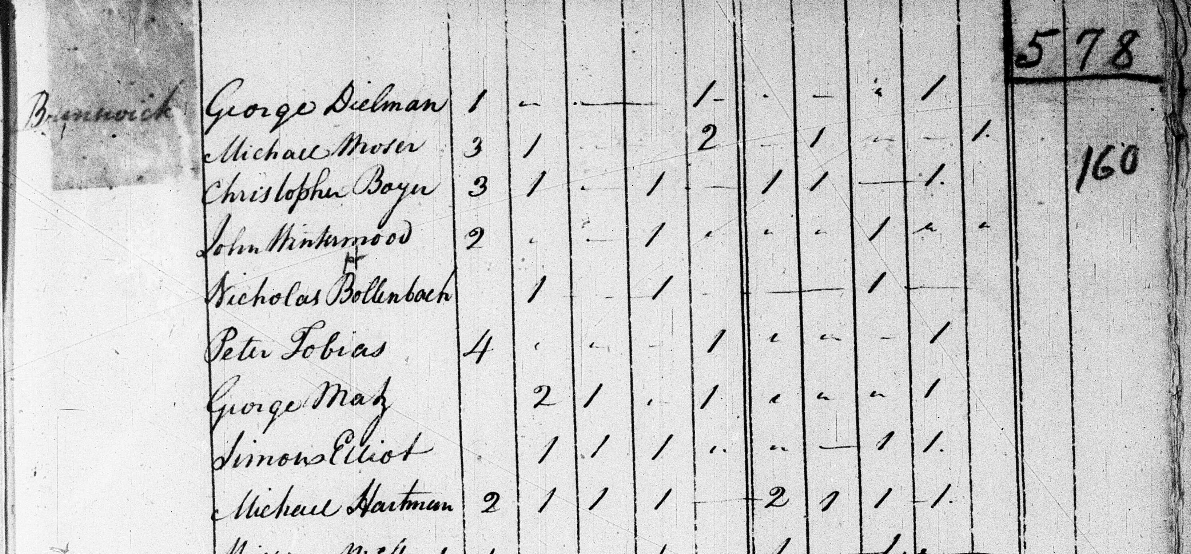 578
Brunswick George Dielman 1 - - 1 - - - " 1
Michael Moser 3 1 - - 2 - 1 - - 1
160
Christopher Boyer 3 1 - 1 - 1 1 - 1
John Wintermood 2 " - 1 " " " 1 " "
Nicholas Bollenbach 1 - 1 - - 1 -
Peter Tobias 4 " " - 1 " " - 1
George Matz 2 1 - 1 " " " 1
Simon Elliot 1 1 1 " " - 1 1
Michael Hartman 2 1 1 1 - 2 1 1 1